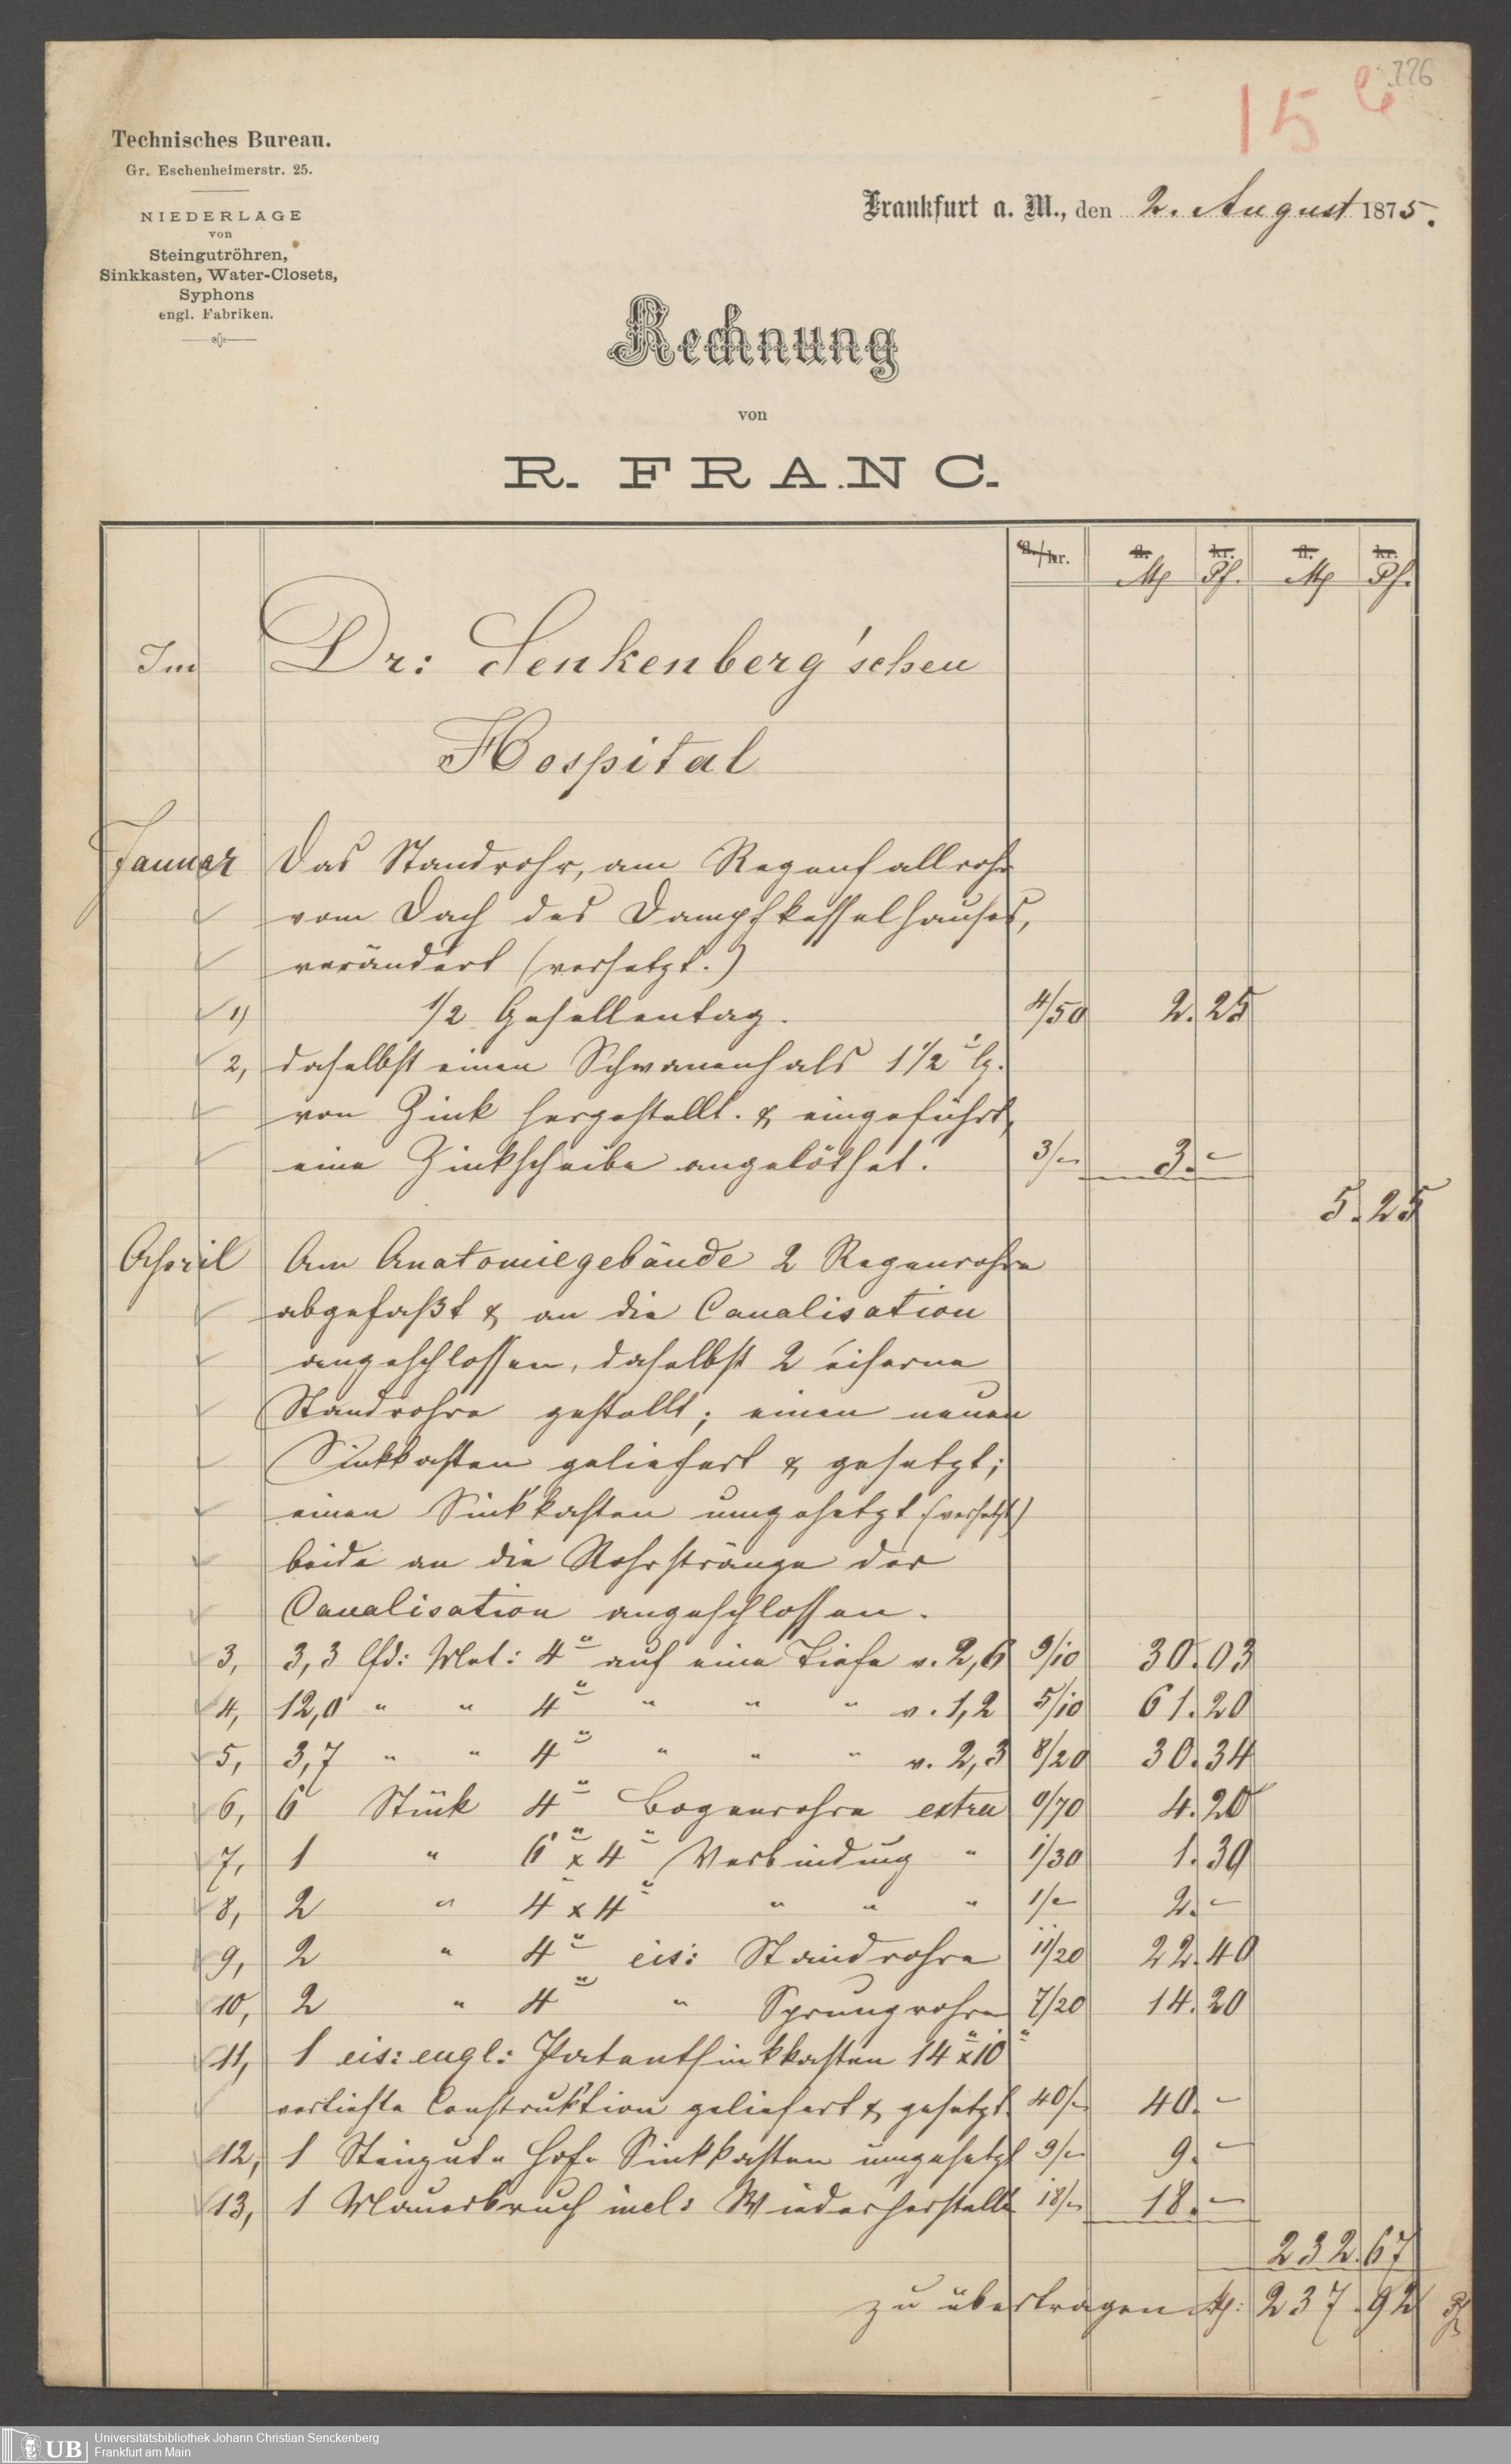 226
15
Technisches Bureau.
Gr. Eschenheimerstr. 25.
NIEDERLAGE
von
Steingutröhren,
Sinkkasten, Water-Closets,
Syphons
engl. Fabriken.
Frankfurt a. M., den 2. August 1875.
Rechnung
von
R. FRANC.
fl./kr. fl. kr. fl. kr.
M Pf. M Pf.
Im Dr: Senkenberg'schen
Hospital
Januar Das Standrohr, am Regenfallrohr
vom Dach des Dampfkesselhauses,
verändert (versetzt.)
1) 1/2 Gesellentag. 4/50 2.25
2, daselbst einen Schwanenhals 1 1/2" lg.
von Zink hergestellt. & eingeführt,
eine Zinkscheibe angelöthet. 3/– 3.–
5.25
April Am Anatomiegebäude 2 Regenrohre
abgefaßt & an die Canalisation
angeschlossen, daselbst 2 eiserne
Standrohre gestellt; einen neuen
Sinkkasten geliefert & gesetzt;
einen Sinkkasten umgesetzt (versetzt)
beide an die Rohrstränge der
Canalisation angeschlossen.
3, 3,3 lfd: Met: 4" auf eine Tiefe v. 2,6 9/10 30.03
4, 12,0 " " 4" " " " v. 1,2 5/10 61.20
5, 3,7 " " 4" " " " v. 2,3 8/20 30.34
6, 6 Stück 4" Bogenrohre extra 0/70 4.20
7, 1 " 6" x 4" Verbindung " 1/30 1.30
8, 2 " 4 x 4" " " " 1/– 2.–
9, 2 " 4" eis: Standrohre 11/20 22.40
10, 2 " 4" " Sprungrohre 7/20 14.20
11, 1 eis: engl: Patentsinkkasten 14" x 10"
vertiefte Construktion geliefert & gesetzt. 40/– 40.–
12, 1 Steingut- Hof- Sinkkasten umgesetzt 9/– 9.–
13, 1 Mauerbruch incl: Wiederherstellt 18/– 18.–
232.67
zu übertragen M: 237.92
UB
Universitätsbibliothek Johann Christian Senckenberg
Frankfurt am Main